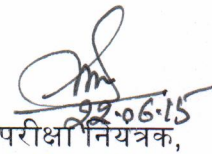 22-06-15
परीक्षा नियंत्रक,